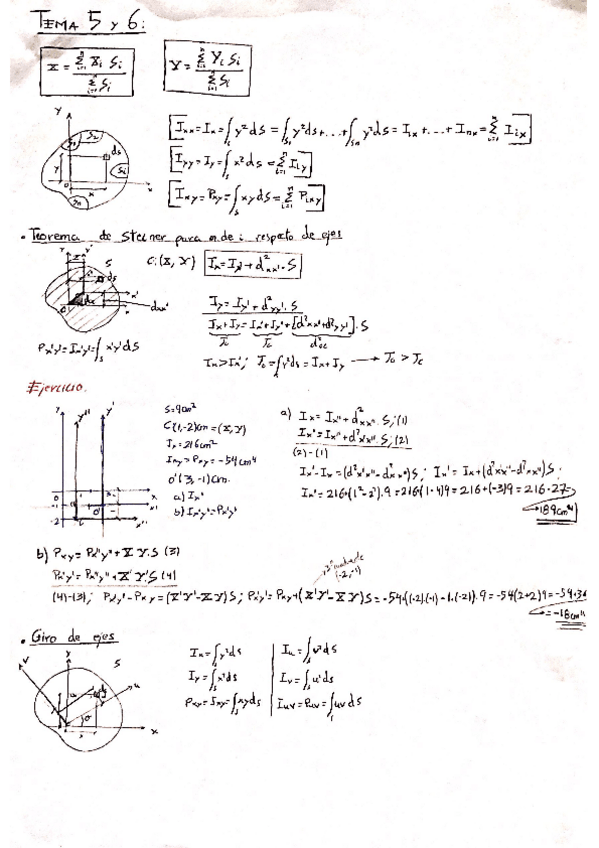 TEMA 5 y 6:
X = Σ(i=1→n) Xi Si / Σ(i=1→n) Si
Y = Σ(i=1→n) Yi Si / Σ(i=1→n) Si
Ixx=Ix=∫s y²ds=∫s1 y²ds+...+∫sn y²ds=I1x+...+Inx=Σ(i=1→n) Iix
Iyy=Iy=∫s x²ds=Σ(i=1→n) Iiy
Ixy=Pxy=∫s xyds=Σ(i=1→n) Pixy
• Teorema de Steiner para m de i respecto de ejes
C:(X, Y) Ix=Ix'+d²xx'·S
Iy=Iy'+d²yy'·S
Ix+Iy=Ix'+Iy'+[d²xx'+d²yy']·S
Px'y'=Ix'y'=∫s x'y'ds
Ix>Ix';
=Ix+Iy → Jo > Jc
Ejercicio.
S=9cm²
C(1,-2)cm=(X,Y)
Ix=216cm⁴
Ixy=Pxy=-54cm⁴
O'(3,-1)cm.
a) Ix'
b) Ix'y'=Px'y'
a) Ix=Ix''+d²xx''·S;(1)
Ix'=Ix''+d²x'x''·S;(2)
(2)-(1)
Ix'-Ix=(d²x'x''-d²xx'')S; Ix'=Ix+(d²x'x''-d²xx'')S;
Ix'=216+(1²-2²)·9=216+(1-4)9=216+(-3)9=216-27=
189cm⁴
b) Pxy=Px''y''+X·Y·S (3)
Px'y'=Px''y''+X'Y'S (4)
(-2,-1)
(4)-(3); Px'y'-Pxy=(X'Y'-XY)S; Px'y'=Pxy+(X'Y'-XY)S=-54+((-2)·(-1)-1·(-2))·9=-54+(2+2)9=-54+36
=-18cm⁴
• Giro de ejes
Ix=∫s y²ds
Iu=∫s v²ds
Iy=∫s x²ds
Iv=∫s u²ds
Pxy=Ixy=∫s xyds
Iuv=Puv=∫s uvds